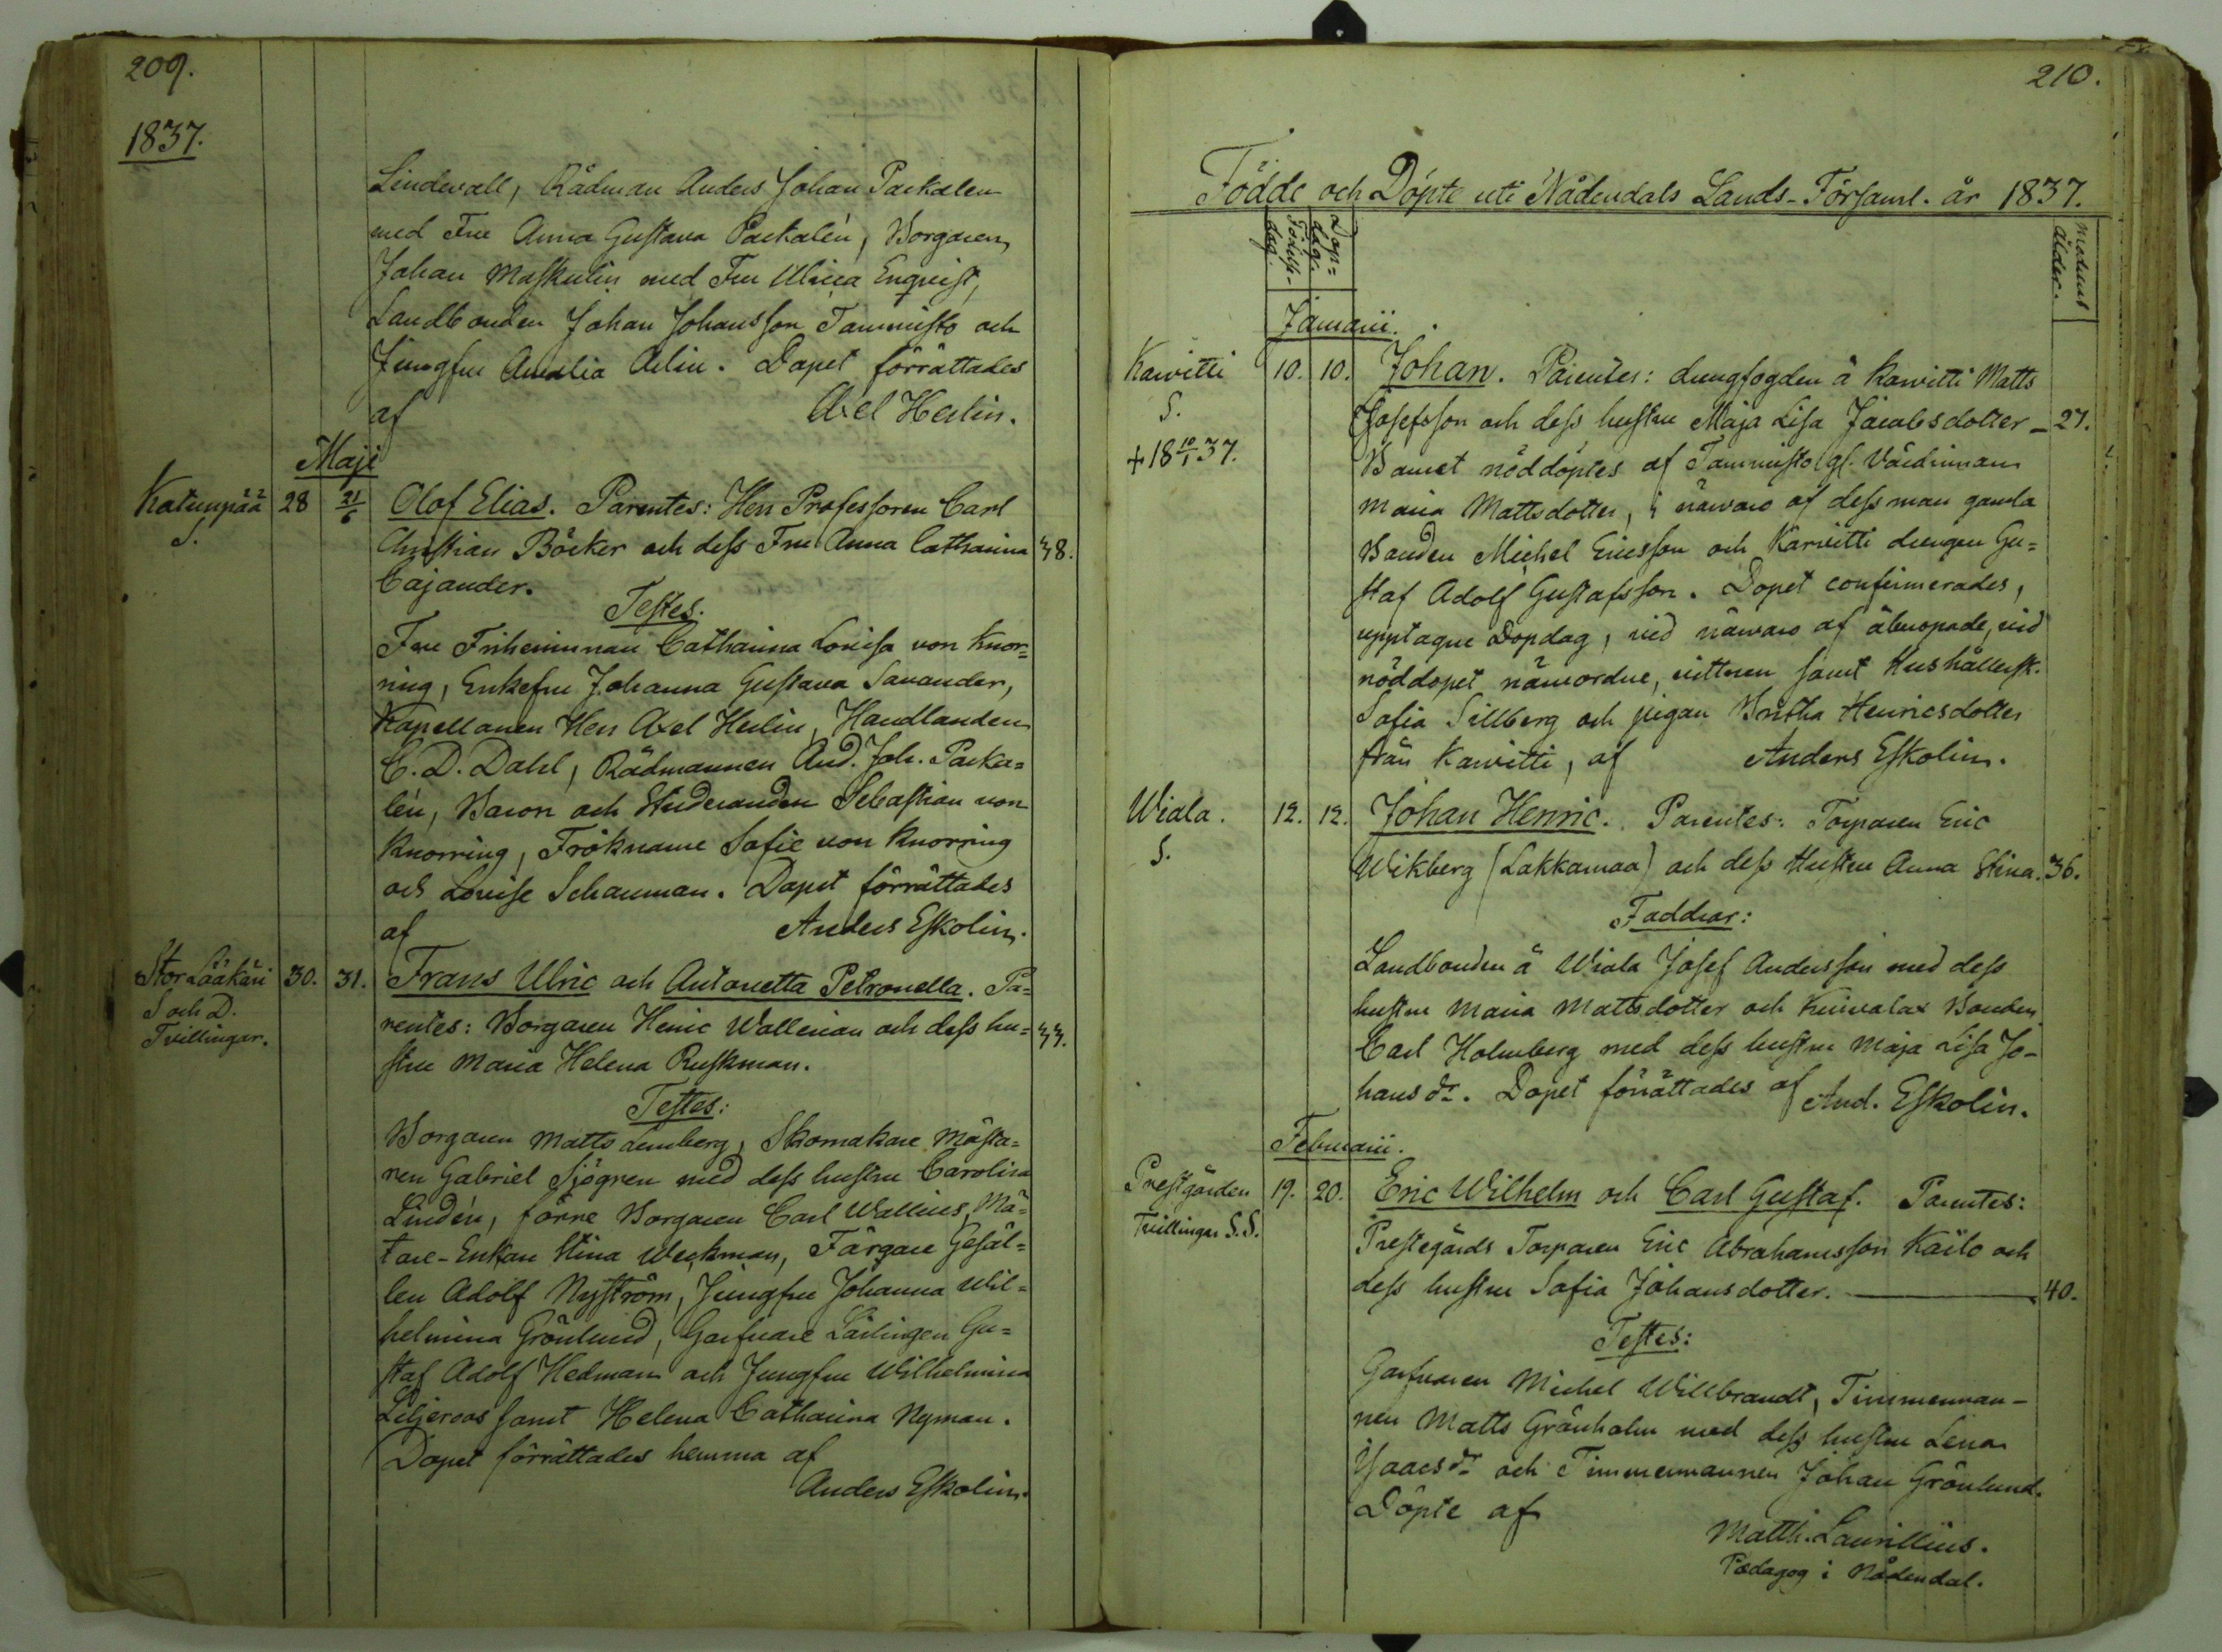 209.
1837.
Lindevall, Rådman Anders Johan Packalen
med Fru Anna Gustava Packalén, Borgaren
Johan Maskulin med Fru Ulrica Enqvist,
Landbonden Johan Johansson Tammisto och
Jungfru Amalia Aelin. Dopet förrättades
af Axel Herlin.
Maji
Katumpää 28 21/6 Olof Elias. Parentes: Herr Professoren Carl
S. Christian Böcker och dess Fru Anna Catharina 38.
Cajander.
Testes.
Fru Friherrinnan Catharina Lovisa von Knor=
ring, Enkefru Johanna Gustava Savander,
Kapellanen Herr Axel Herlin, Handlanden
C. D. Dahl, Rådmannen And. Joh. Packa=
lén, Baron och Studeranden Sebastian von
Knorring, Fröknarne Sofie von Knorring
och Louise Schauman. Dopet förrättades
af Anders Eskolin.
Stor Lääkäri 30. 31. Frans Ulric och Antonetta Petronella. Pa=
S och D. rentes: Borgaren Henric Wallenian och dess hu= 33.
Tvillingar. stru Maria Helena Ruskman.
Testes:
Borgaren Matts Lemberg, Skomakare Mästa=
ren Gabriel Sjögren med dess hustru Carolina
Lindén, förre Borgaren Carl Wallius, Må=
tare-Enkan Stina Weckman, Färgare Gesäl=
len Adolf Nyström, Jungfru Johanna Wil=
helmina Grönlund, Garfvare Lärlingen Gu=
staf Adolf Hedman och Jungfru Wilhelmina
Liljeroos samt Helena Catharina Nyman.
Dopet förrättades hemma af
Anders Eskolin.
210.
Födde och Döpte uti Nådendals Lands-Församl. år 1837.
Födelse-dag. Dop=dag. Modrens ålder.
Januarii.
Karvitti 10. 10. Johan. Parentes: drengfogden å Karvitti Matts
S. Josefsson och dess hustru Maja Lisa Jacobsdotter – 27.
+18 10/1 37. Barnet nöddöptes af Tammisto gl. Värdinnan
Maria Mattsdotter, i närvaro af dess man gamla
Bonden Michel Ericsson och Karvitti drengen Gu=
staf Adolf Gustafsson. Dopet confirmerades,
upptagne Dopdag, vid närvaro af åberopade, vid
nöddopet närvordne, vittnen samt Hushållersk.
Sofia Sillberg och pigan Britha Henricsdotter
från Karvitti, af Anders Eskolin.
Wiala. 12. 12. Johan Henric. Parentes: Torparen Eric
S. Wikberg (Lakkamaa) och dess Hustru Anna Stina. 36.
Faddrar:
Landbonden å Wiala Josef Andersson med dess
hustru Maria Mattsdotter och Kuivalax Bonden
Carl Holmberg med dess hustru Maja Lisa Jo-
hansdr. Dopet förrättades af And. Eskolin.
Februarii.
Prestgården 19. 20. Eric Wilhelm och Carl Gustaf. Parentes:
Tvillingar S.S. Prestegårds Torparen Eric Abrahamsson Kailo och
dess hustru Sofia Johansdotter. — 40.
Testes:
Garfvaren Michel Willbrandt, Timmerman-
nen Matts Grönholm med dess hustru Lena
Isaacsdr och Timmermannen Johan Grönlund.
Döpte af
Matth. Laurillius.
Pædagog i Nådendal.